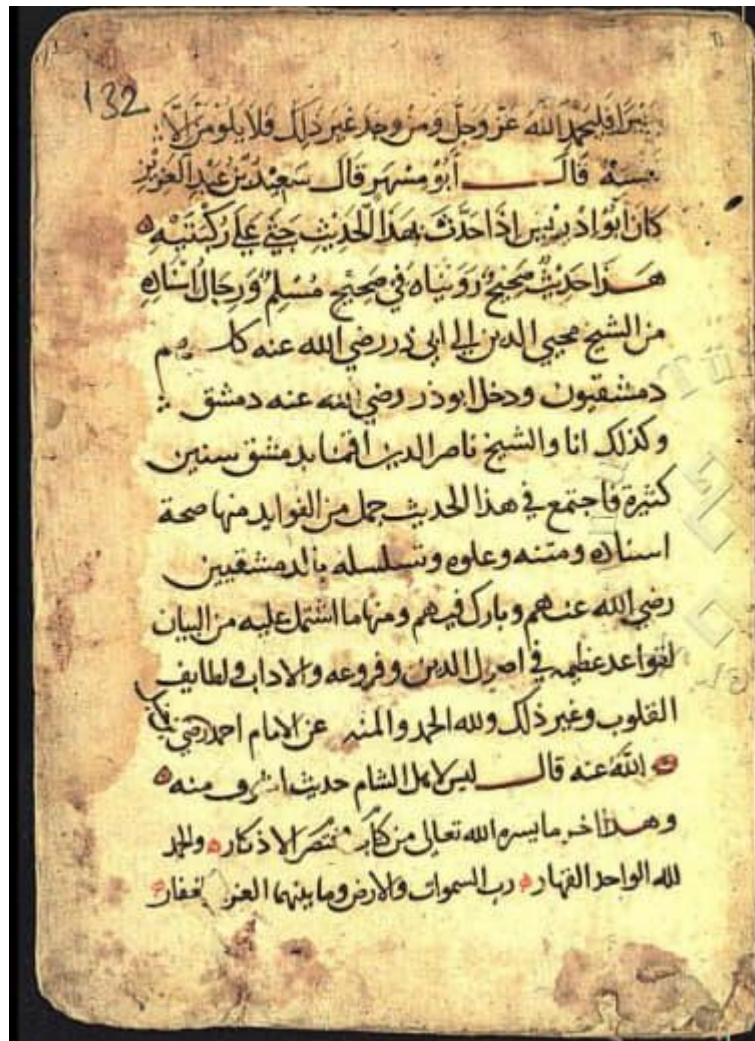 132
خيرا فليحمد الله عز وجل ومن وجد غير ذلك فلا يلومن الا
نفسه قال أبو مسهر قال سعيد بن عبد العزيز
كان أبو ادريس اذا حدث بهذا الحديث جثى على ركبتيه
هذا حديث صحيح رويناه في صحيح مسلم ورجال اسناده
من الشيخ محيي الدين الى ابي ذر رضي الله عنه كلهم
دمشقيون ودخل ابو ذر رضي الله عنه دمشق
وكذلك انا والشيخ ناصر الدين اقمنا بدمشق سنين
كثيرة فاجتمع في هذا الحديث جمل من الفوايد منها صحة
اسناده ومتنه وعلوه وتسلسله بالدمشقيين
رضي الله عنهم وبارك فيهم ومنها ما اشتمل عليه من البيان
لقواعد عظيمه في اصول الدين وفروعه والاداب ولطايف
القلوب وغير ذلك ولله الحمد والمنه عن الامام احمد رضي
الله عنه قال ليس لاهل الشام حديث اشرف منه
وهذا اخر ما يسره الله تعالى من كتاب مختصر الاذكار والحمد
لله الواحد القهار رب السموات والارض وما بينهما العزيز الغفار